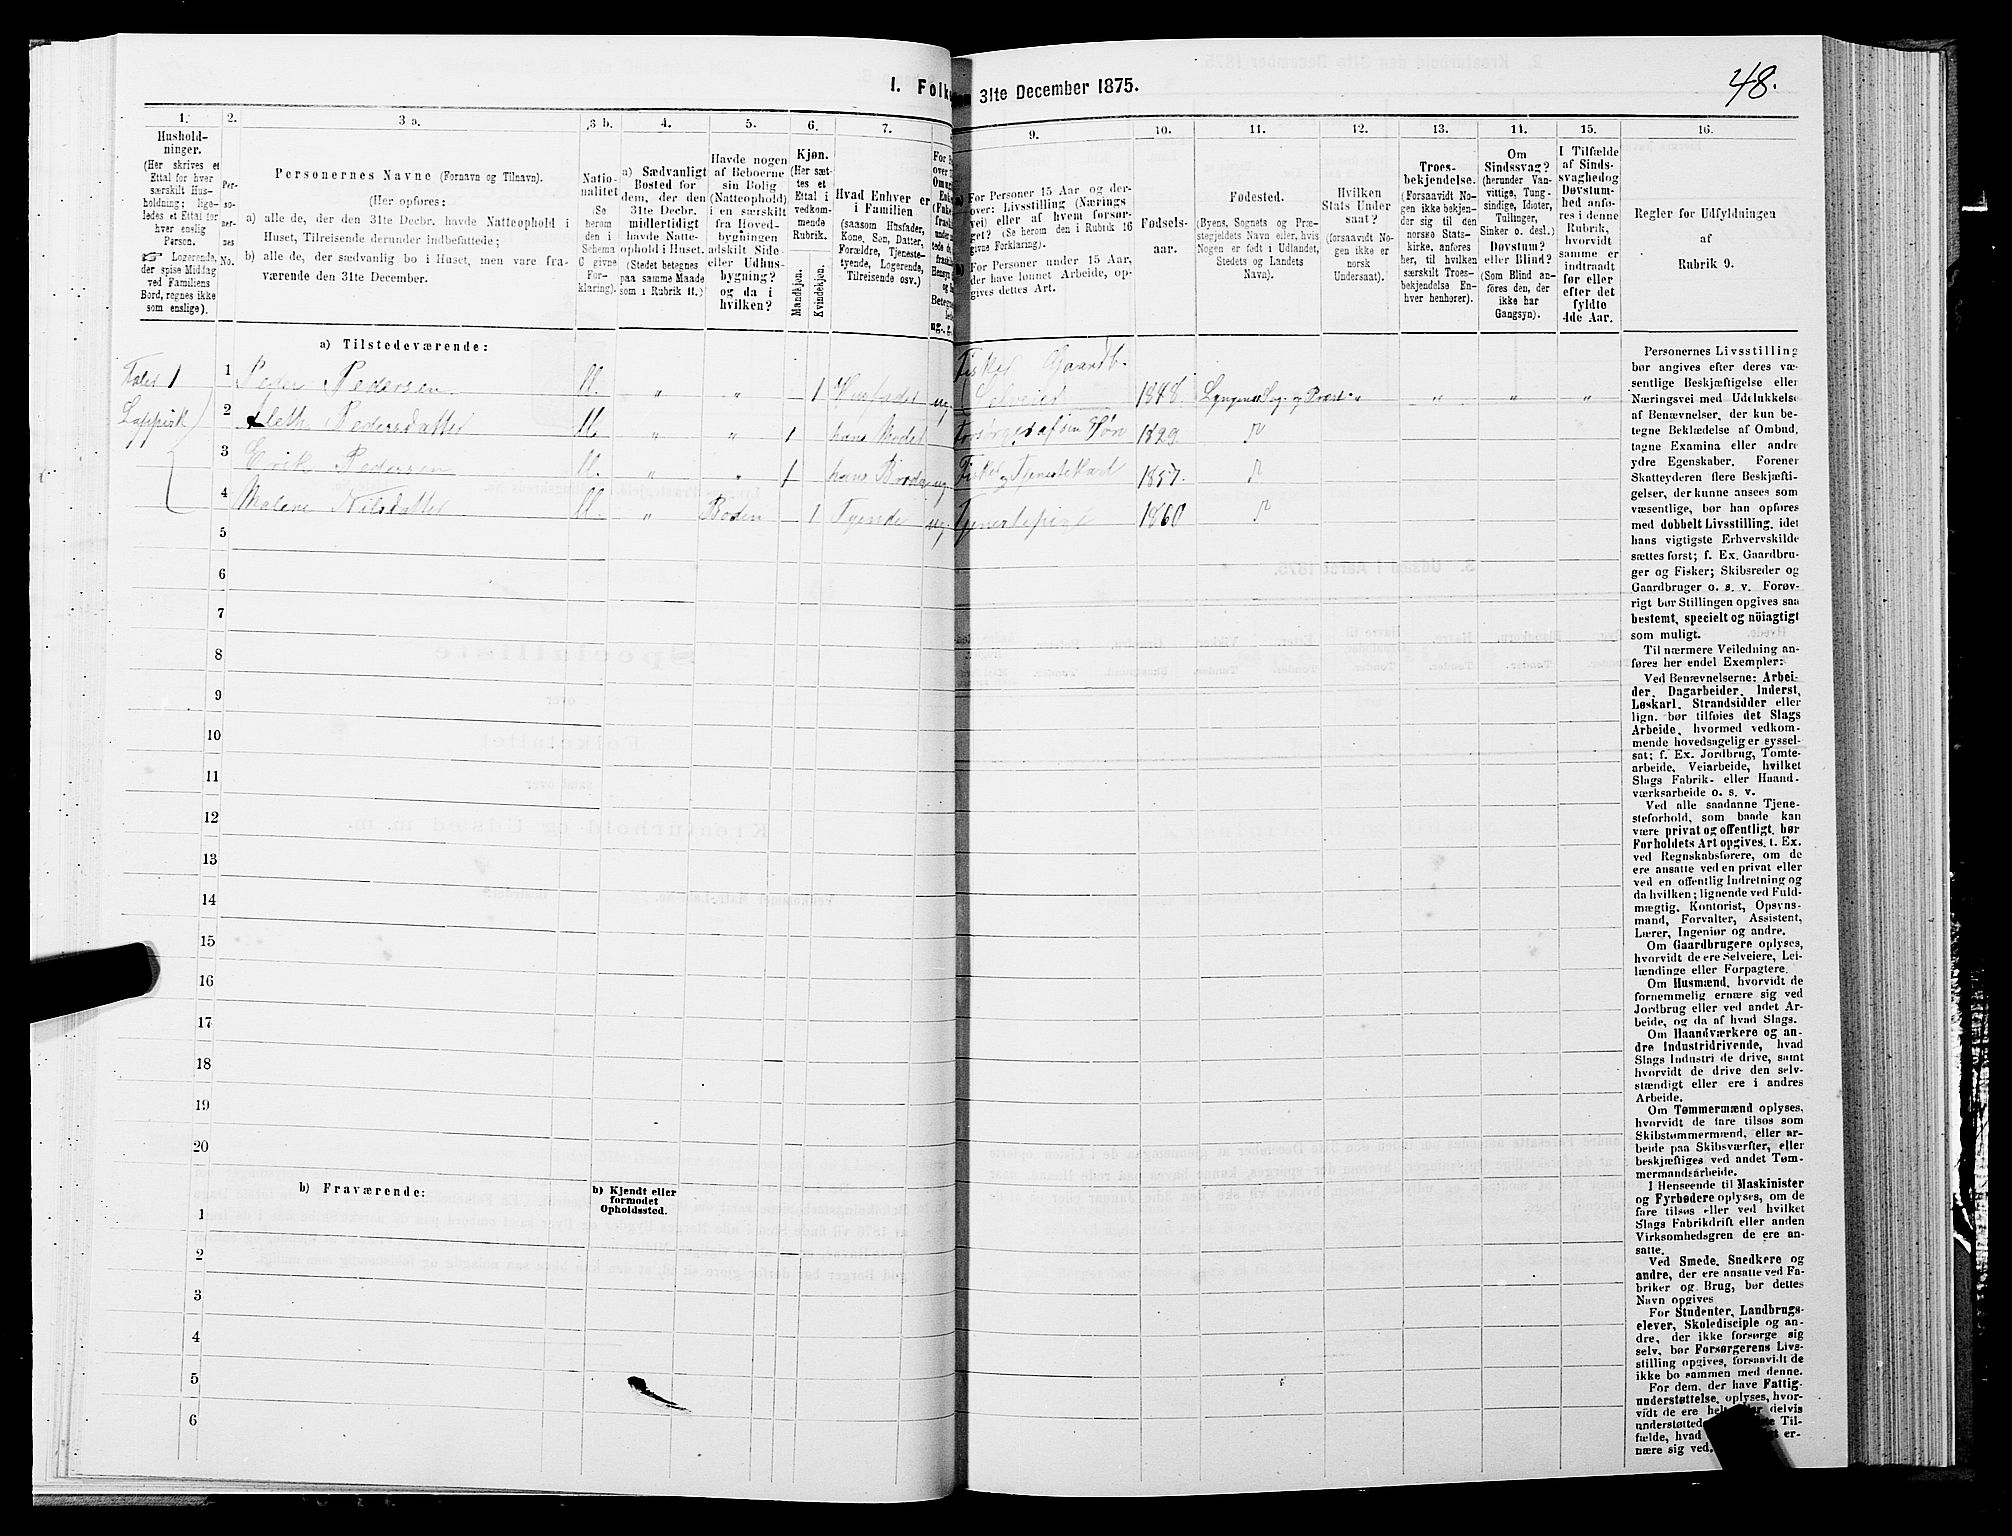 I. Folke
31te December 1875.
48.
1.
2.
3 a.
3 b.
4.
5.
6.
7.
9.
10.
11.
12.
13.
14.
15.
16.
Hushold-
ninger.
(Her skrives et
Ettal for hver
særskilt Hus-
holdning; lige-
ledes et Ettal for
hver enslig
Person.
☞ Logerende,
der spise Middag
ved Familiens
Bord, regnes ikke
som enslige).
Per-
so-
ner-
nes
No.
Personernes Navne (Fornavn og Tilnavn).
(Her opføres:
a) alle de, der den 31te Decbr. havde Natteophold i
Huset, Tilreisende derunder indbefattede;
b) alle de, der sædvanlig bo i Huset, men vare fra-
værende den 31te December.
Natio-
nalitet
(Se
herom
den i
Schema
C givne
For-
klaring).
a) Sædvanligt
Bosted for
dem, der den
31te Decbr.
midlertidigt
havde Natte-
ophold i Huset.
(Stedet betegnes
paa samme Maade
som i Rubrik 11.)
Havde nogen
af Beboerne
sin Bolig
(Natteophold)
i en særskilt
fra Hoved-
bygningen
adskilt Side-
eller Udhus-
bygning?
og da i
hvilken?
Kjøn.
(Her sæt-
tes et
Ettal i
vedkom-
mende
Rubrik.
Mandkjøn.
Kvindekjøn.
Hvad Enhver er
i Familien
(saasom Husfader,
Kone, Søn, Datter,
Forældre, Tjeneste-
tyende, Logerende,
Tilreisende osv.)
ug., g.
For Personer 15 Aar og der-
over: Livsstilling (Nærings
vei) eller af hvem forsør-
get? (Se herom i Rubrik 16
givne Forklaring).
For Personer under 15 Aar,
der have lønnet Arbeide, op-
gives dettes Art.
Fødsels-
aar.
Fødested.
(Byens, Sognets og Præ-
stegjeldets Navn eller, hvis
Nogen er født i Udlandet,
Stedets og Landets
Navn).
Hvilken
Stats Under
saat?
(forsaavidt No-
gen ikke er
norsk
Undersaat).
Troes-
bekjendelse.
(Forsaavidt No-
gen ikke bekjen-
der sig til den
norske Stats-
kirke, anføres
her, til hvilken
særskilt Troes-
bekjendelse En-
hver henhører).
Om
Sindssvag?
(herunder Van-
vittige, Tung-
sindige, Idioter,
Tullinger,
Sinker o. desl.)
Døvstum?
eller Blind?
(Som Blind an-
føres den, der
ikke har
Gangsyn).
I Tilfælde
af Sinds-
svaghed og
Døvstum-
hed anfø-
res i denne
Rubrik,
hvorvidt
samme er
indtraadt
før eller
efter det
fyldte
4de Aar.
Regler for Udfyldningen
af
Rubrik 9.
a) Tilstedeværende:
1 Peder Pedersen " " 1 ug Selveier 1848 " " " "
2 Pedersdatter " " 1 hans Moder 1829
3 Erik Pedersen " " 1 hans Broder ug Fisker 1857.
4 Malene Nilsdatter " Boden 1 Tyende ug. Tjenestepige 1860
5
6
7
8
9
10
11
12
13
14
15
16
17
18
19
20
b) Fraværende:
b) Kjendt eller
formodet
Opholdssted.
1
2
3
4
5
6
Personernes Livsstilling
bør angives efter deres væ-
sentlige Beskjæftigelse eller
Næringsvei med Udelukkelse
af Benævnelser, der kun be-
tegne Beklædelse af Ombud,
tagne Examina eller andre
ydre Egenskaber. Forener
Skatteyderen flere Beskjæfti-
gelser, der kunne ansees som
væsentlige, bør han opføres
med dobbelt Livsstilling, idet
hans vigtigste Erhvervskilde
sættes først; f. Ex. Gaardbru-
ger og Fisker; Skibsreder og
Gaardbruger o. s. v. Forøv-
rigt bør Stillingen opgives saa
bestemt, specielt og nöiagtigt
som muligt.
Til nærmere Veiledning an-
føres her endel Exempler:
Ved Benævnelserne: Arbei-
der, Dagarbeider, Inderst,
Løskarl, Strandsidder eller
lign. bør tilføies det Slags
Arbeide, hvormed vedkom-
mende hovedsagelig er syssel-
sat; f. Ex. Jordbrug, Tomte-
arbeide, Veiarbeide, hvilket
Slags Fabrik- eller Haand-
værksarbeide o. s. v.
Ved alle saadanne Tjene-
steforhold, som baade kan
være privat og offentligt, bør
Forholdets Art opgives, t. Ex.
ved Regnskabsførere, om de
ere ansatte ved en privat eller
ved en offentlig Indretning og
da hvilken; lignende ved Fuld-
mægtig, Kontorist, Opsyns-
mand, Forvalter, Assistent,
Lærer, Ingeniør og andre.
Om Gaardbrugere oplyses,
hvorvidt de ere Selveiere, Lei-
lændinge eller Forpagtere.
Om Husmænd, hvorvidt de
fornemmelig ernære sig ved
Jordbrug eller ved andet Ar-
beide, og da af hvad Slags.
Om Haandværkere og an-
dre Industridrivende, hvad
Slags Industri de drive, samt
hvorvidt de drive den selv-
stændigt eller ere i andres
Arbeide.
Om Tømmermænd oplyses,
hvorvidt de fare tilsøs som
Skibstømmermænd, eller ar-
beide paa Skibsværfter, eller
beskjæftiges ved andet Tøm-
mermandsarbeide.
I Henseende til Maskinister
og Fyrbødere oplyses, om de
fare tilsøs eller ved hvilket
Slags Fabrikdrift eller anden
Virksomhedsgren de ere an-
satte.
Ved Smede, Snedkere og
andre, der ere ansatte ved Fa-
briker og Brug, bør dettes
Navn opgives
For Studenter, Landbrugs-
elever, Skoledisciple og an-
dre, der ikke forsørge sig
selv, bør Forsørgerens Livs-
stilling opgives, forsaavidt de
ikke bo sammen med denne.
For dem, der have Fattig-
understøttelse, oplyses, hvor-
vidt de ere delvis
understøttede Til-
fælde, hvad er-
nære sig ved.